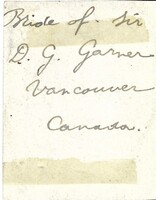 Bride of Sir
D. G. Garner
Vancouver
Canada.